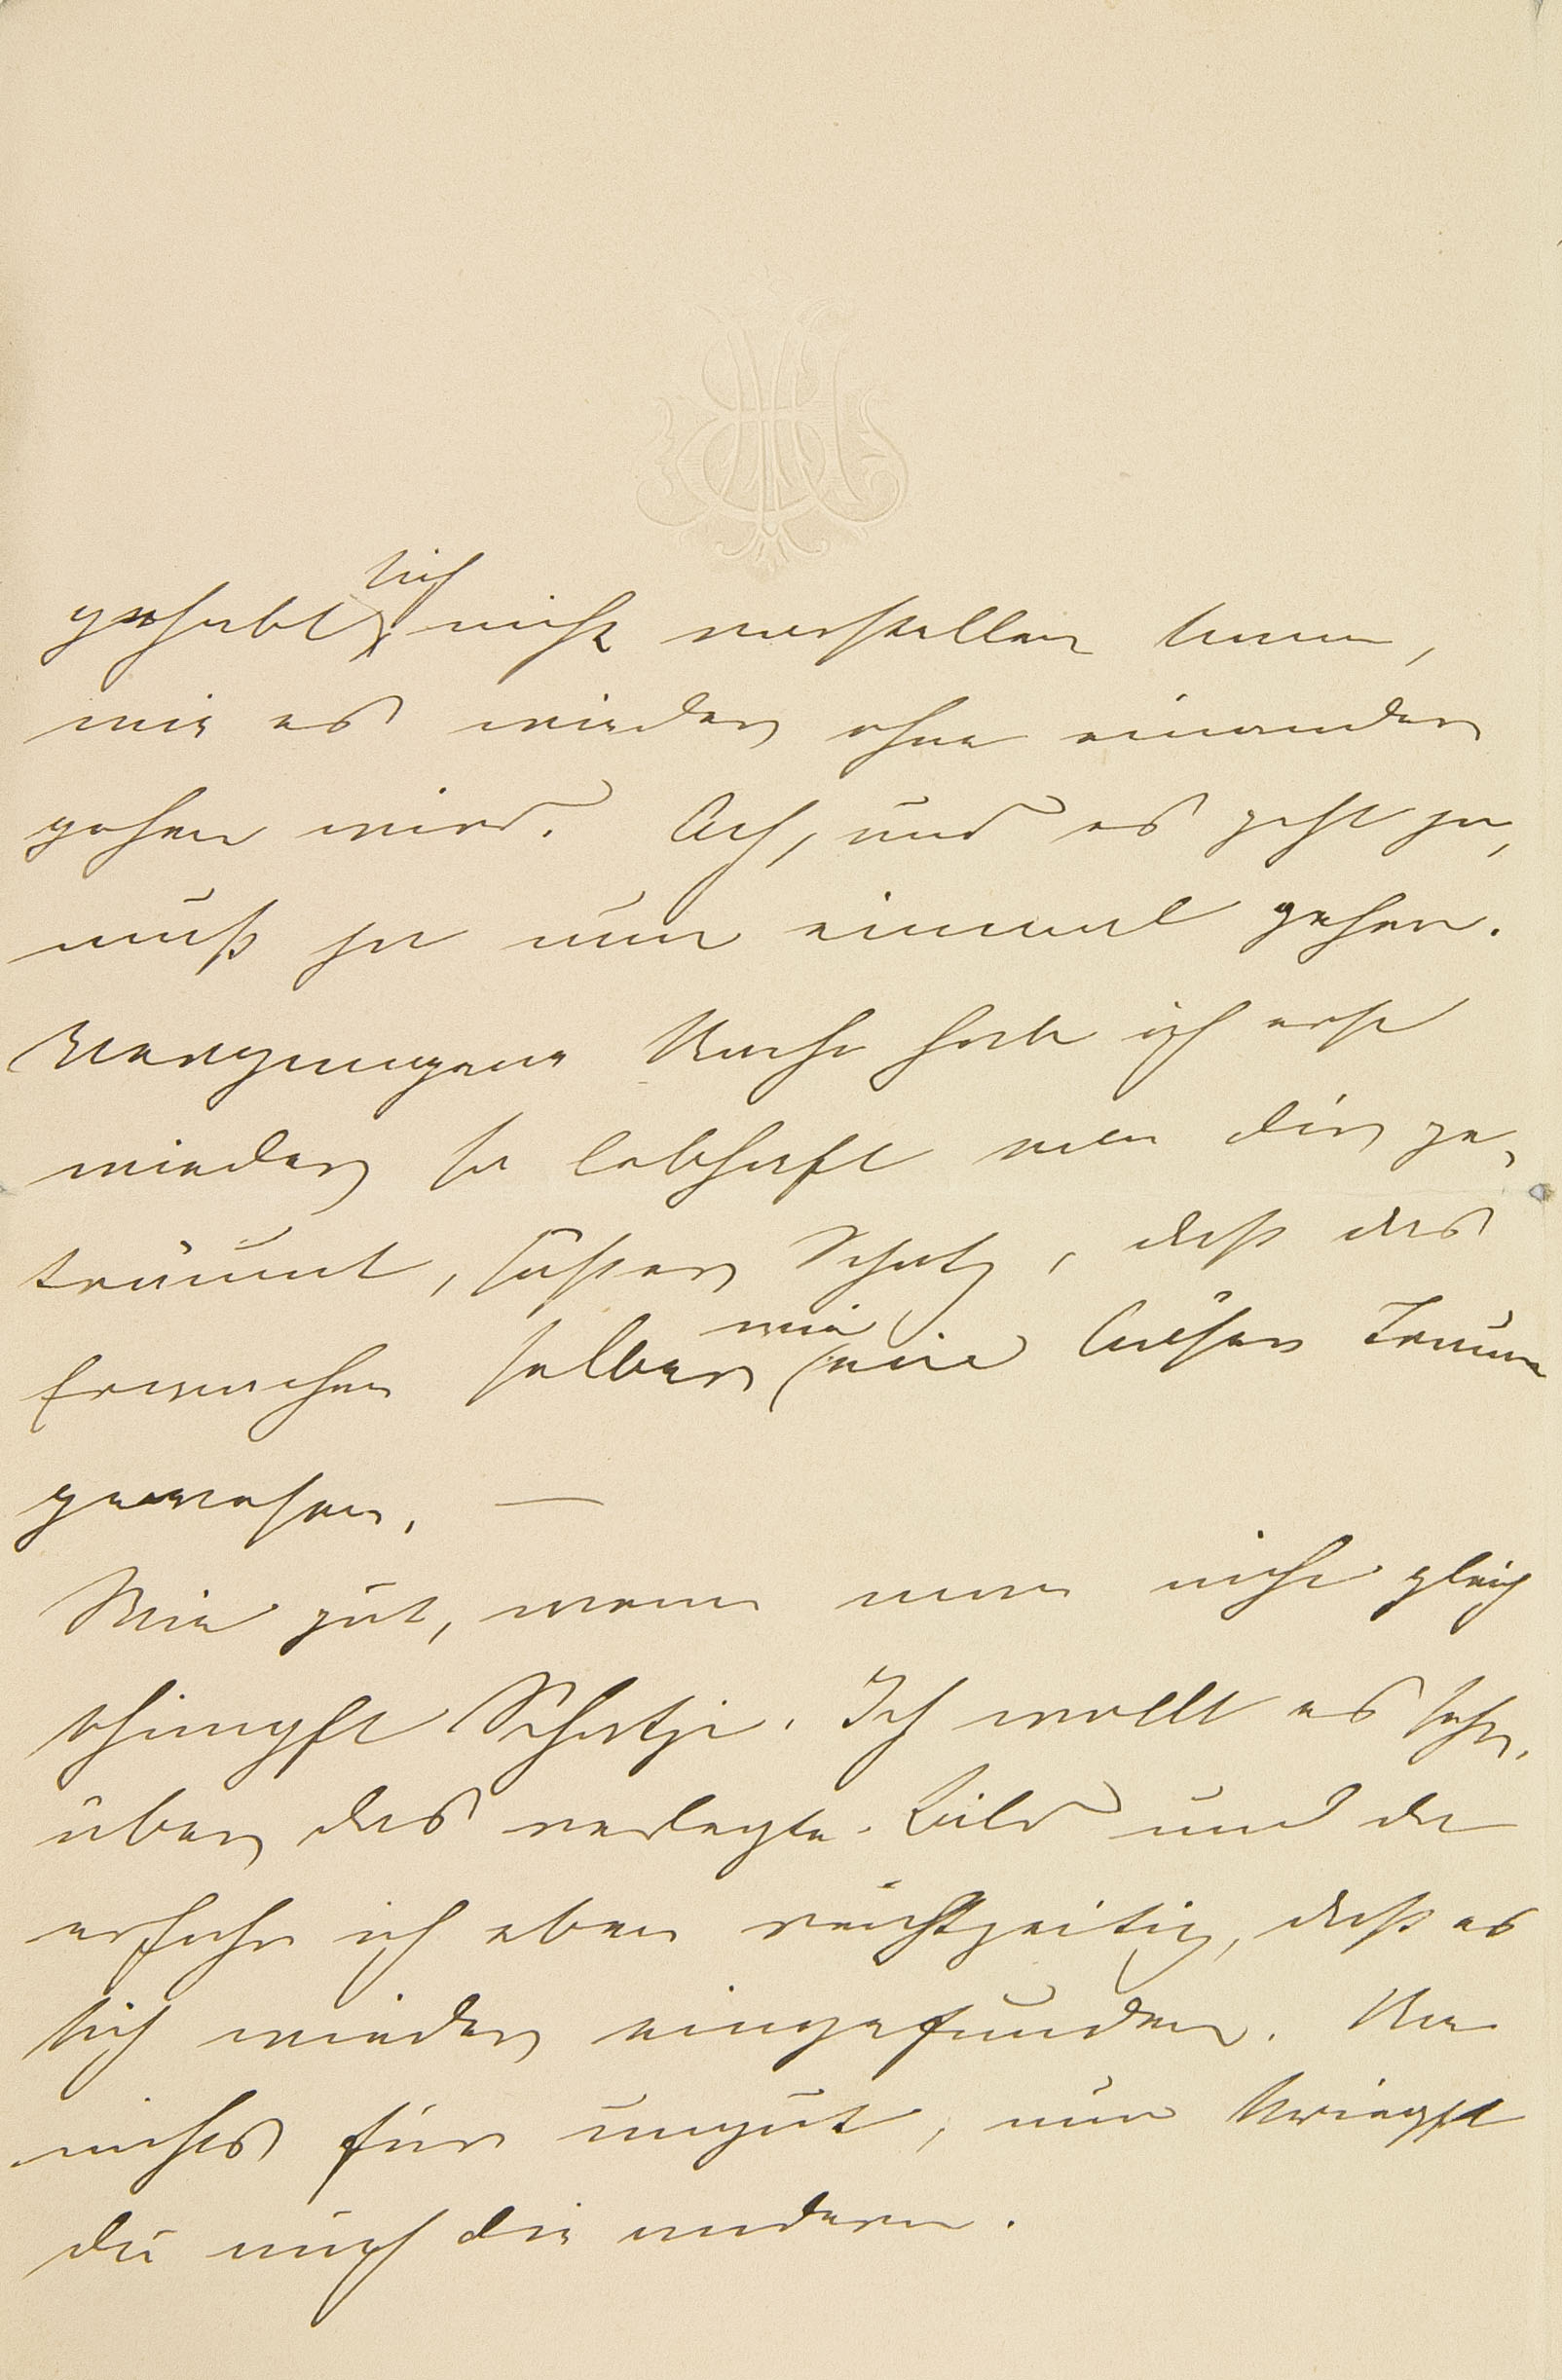 gehabt sich nicht vorstellen kann,
wie es wieder ohne einander
gehen wird. Ach, und es geht ja,
muß ja nun einmal gehen.
Vergangene Nacht hab ich erst
wieder so lebhaft von dir ge-
träumt, süßer Schatz, daß das
Erwachen selber wie ein böser Traum
gewesen. —
Wie gut, wenn man nicht gleich
schimpft Schatzi. Ich wollt es sehr,
über das verlegte Bild und da
erfuhr ich eben rechtzeitig, daß es
sich wieder eingefunden. Na
nichts für ungut, nun kriegst
du auch die andern.